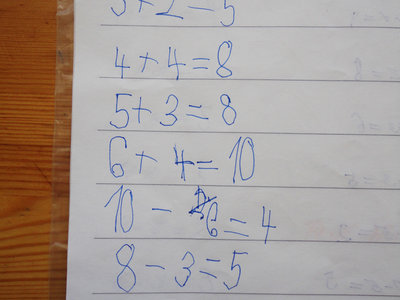 3+2=5
4+4=8
5+3=8
6+4=10
10-6=4
8-3=5